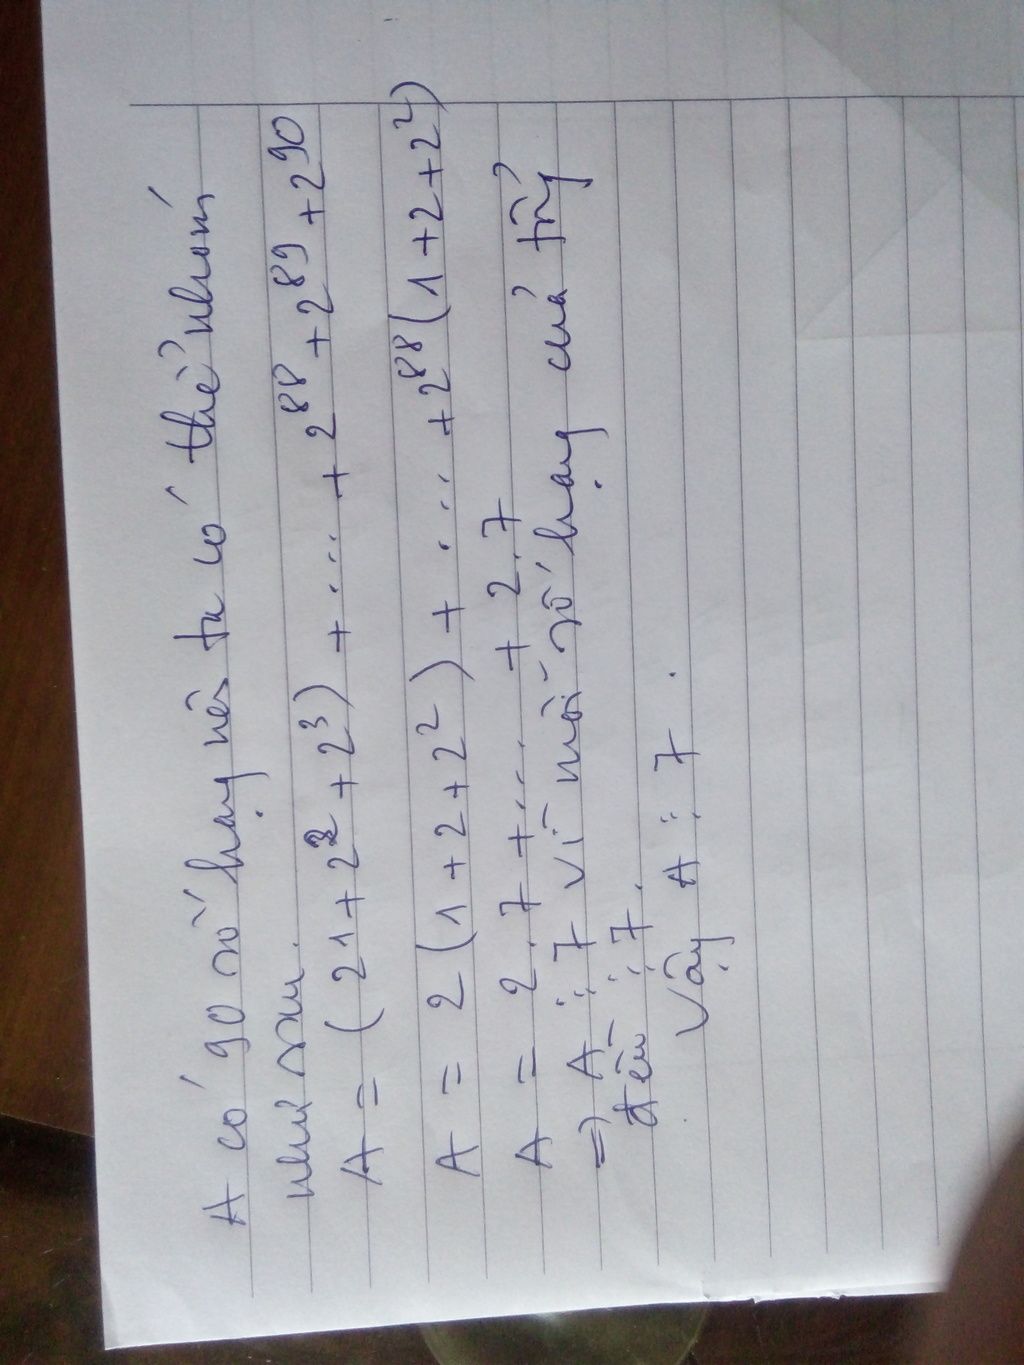 A có 90 số hạng nên ta có thể nhóm
như sau.
A = (21 + 2² + 2³) + ... + 2⁸⁸ + 2⁸⁹ + 2⁹⁰
A = 2(1 + 2 + 2²) + ... + 2⁸⁸(1 + 2 + 2²)
A = 2.7 + ... + 2.7
=> A ⋮ 7 vì mỗi số hạng của tổng
đều ⋮ 7.
Vậy A ⋮ 7.